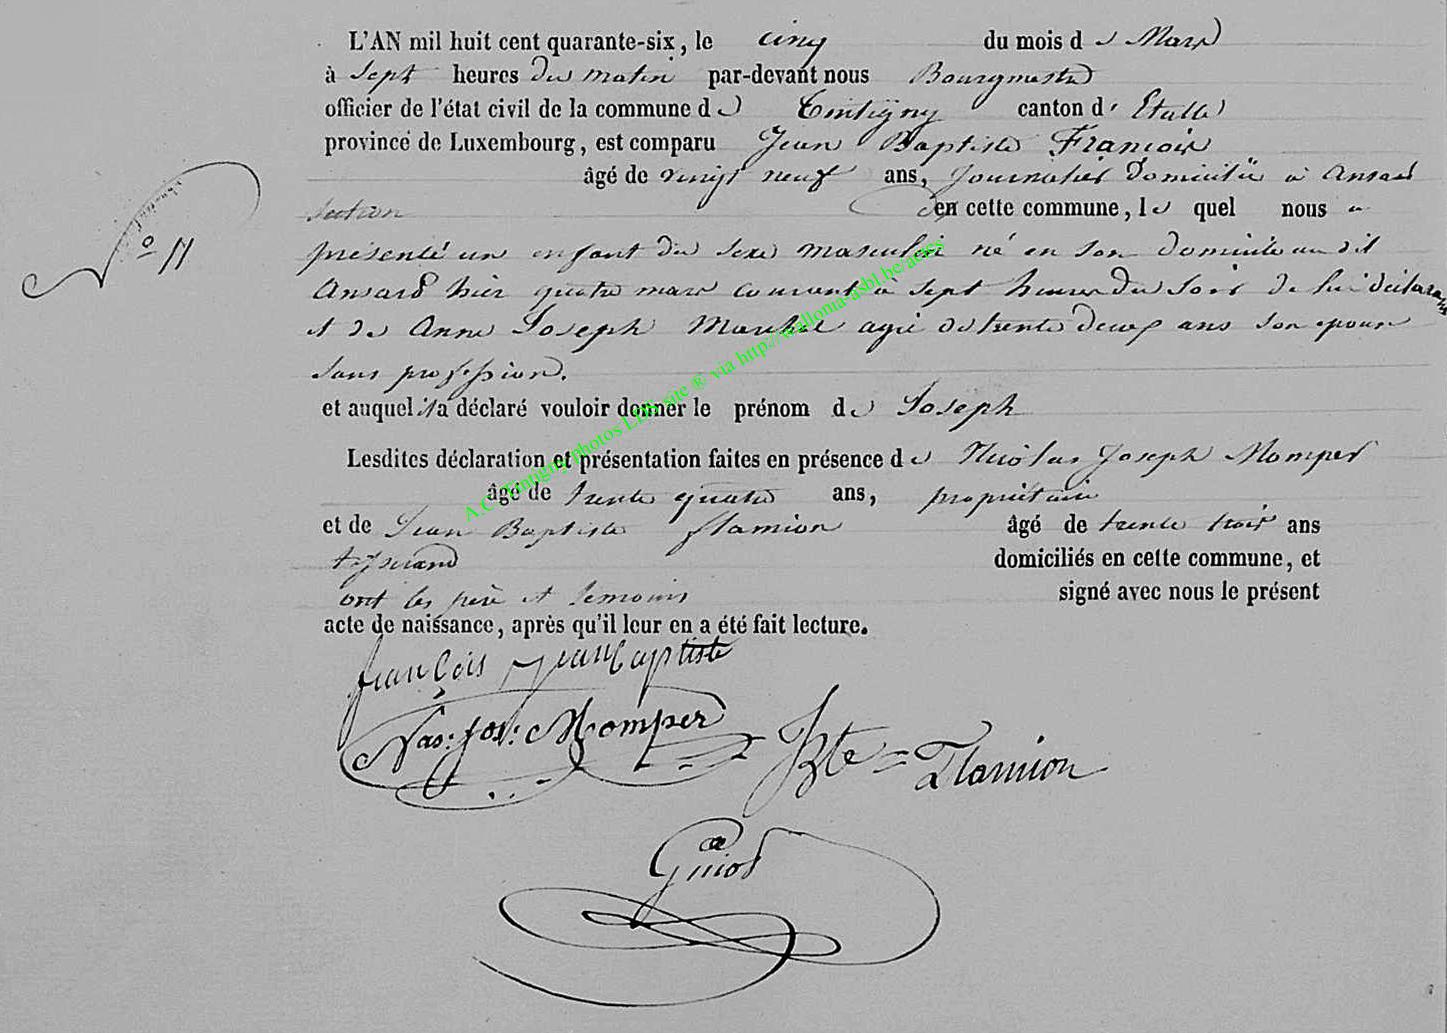 L'AN mil huit cent quarante-six, le cinq du mois de Mars
à Sept heures du matin par-devant nous Bourgmestre
officier de l'état civil de la commune de Tintigny canton d' Etalle
province de Luxembourg, est comparu Jean Baptiste François
âgé de vingt neuf ans, Journalier Domicilié à Ansart
Section en cette commune, le quel nous a
N° 11
présenté un enfant du sexe masculin né en son domicile au dit
Ansart hier quatre mars courant à sept heures du soir de lui déclarant
et de Anne Joseph agée de trente deux ans son epouse
sans profession.
et auquel il a déclaré vouloir donner le prénom de Joseph
Lesdites déclaration et présentation faites en présence de Nicolas Joseph Momper
âgé de trente quatre ans, propriétaire
et de Jean Baptiste flamion âgé de trente trois ans
tisserand domiciliés en cette commune, et
ont les père et temoins signé avec nous le présent
acte de naissance, après qu'il leur en a été fait lecture.
françois jean baptiste
Nas: Jos: Momper Bte = Flamion
Guiot
A.C. Tintigny photos LDS site ® via http://walloma-asbl.be/actes